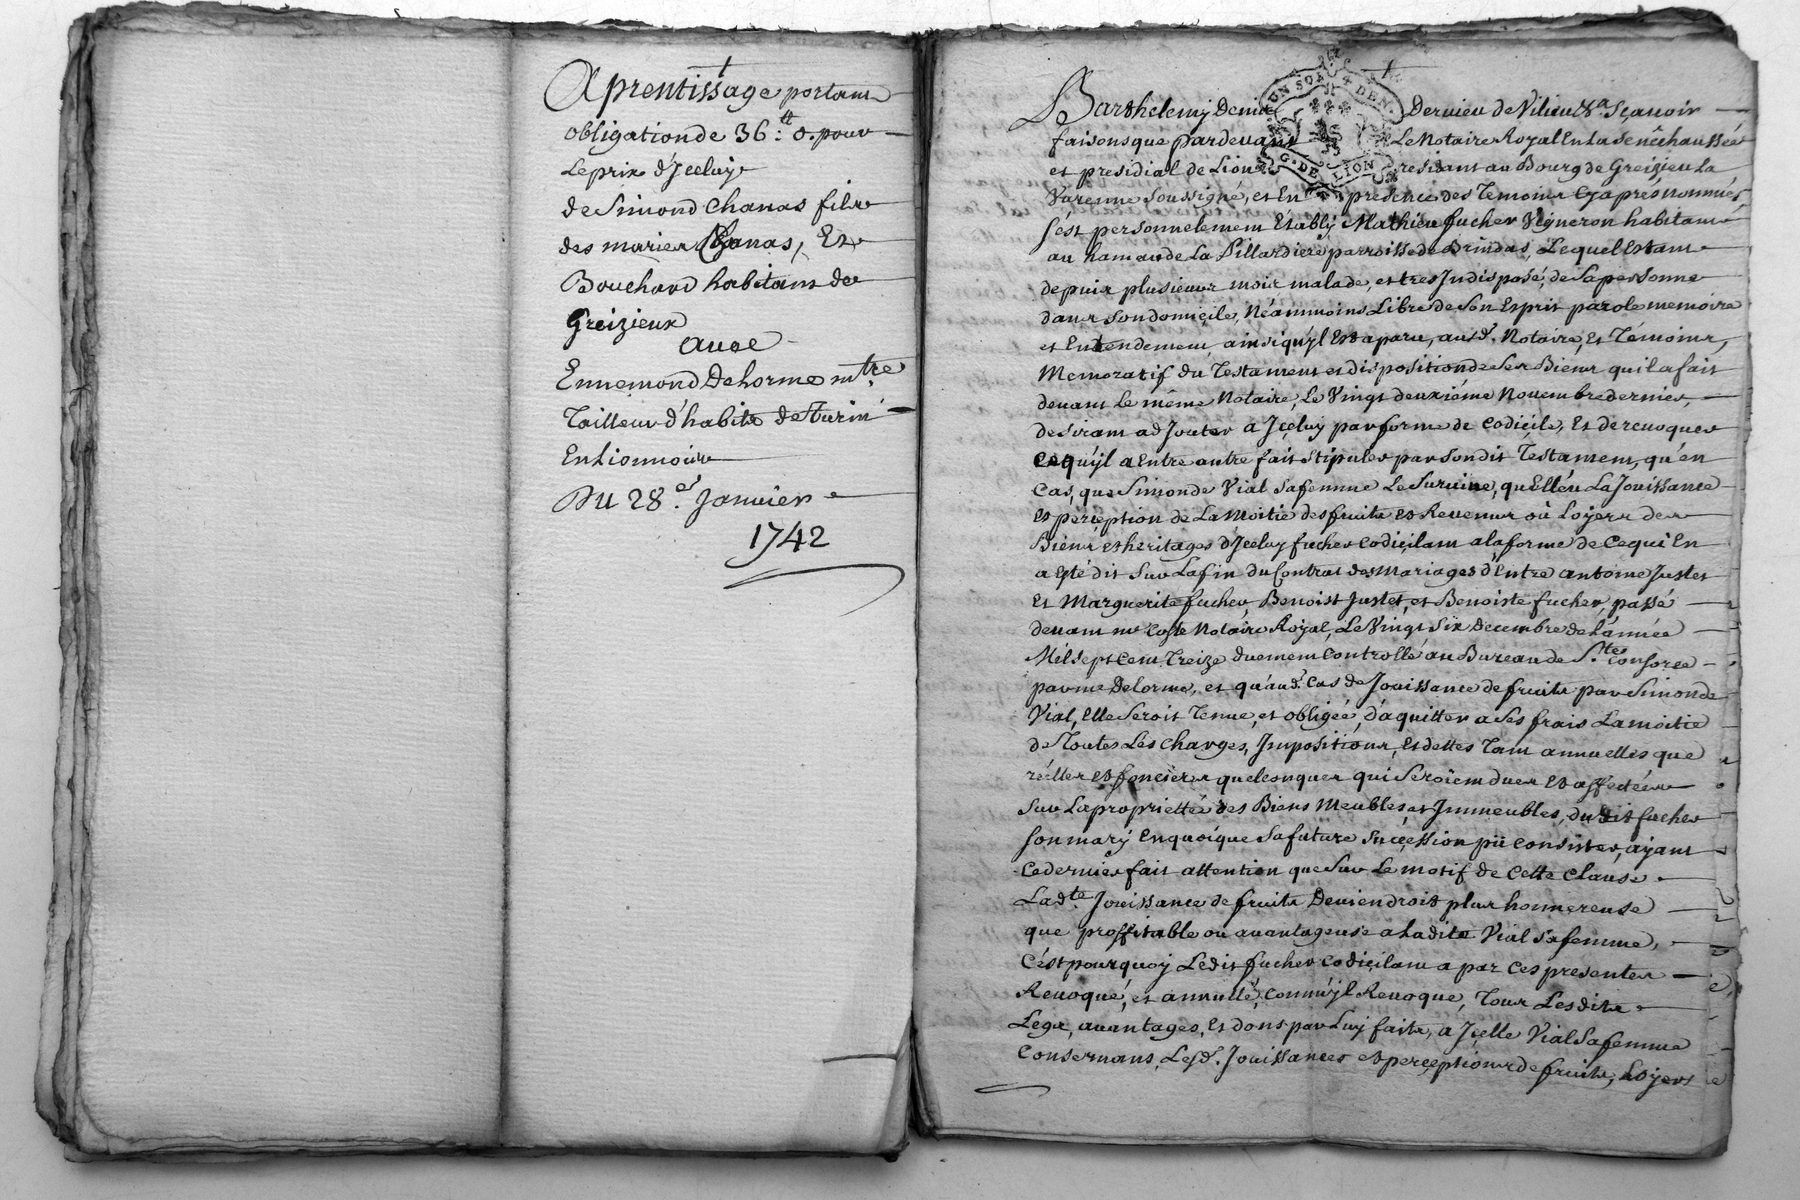 Aprentissage portant
obligation de 36:tt 0. pour
Le prix d'Jceluy
de Simond Chanas fils
des mariez Chanas, Et
Bouchard habitans de
Greizieux
avec
Ennemond Delorme mtre
Tailleur d'habits de Turin
En Lionnois
Du 28.e Janvier
1742
UN SOL 4 DEN.
G. DE LION
Barthelemy Denis Dervieu de Vilieu &a Sçavoir
faisons que pardevant Le Notaire Royal En La Senêchaussée
et presidial de Lion residant au Bourg de Greizieu La
Varenne Soussigné, et En presence des Temoins Cy aprés nommés
s'est personnelement Etably Mathieu fucher Vigneron habitant
au hameau de La Pillardiere parroisse de Brindas, Lequel Etant
depuis plusieurs mois malade, et tres Jndisposé, de Sa personne
dans Son domiçile, Néammoins Libre de Son Esprit parole memoire
et Entendement, ainsi qu'yl Est aparu, aud. Notaire, Et Témoins,
Memoratif du Testament et disposition de Ses Biens qu'il a fait
devant Le même Notaire, Le Vingt deuxiéme Novembre dernier,
desirant adJouter a Jçeluy par forme de Codiçile, Et derevoquer
Ce qu'yl a Entre autre fait Stipuler par Son dit Testament, qu'en
Cas, que Simonde Vial Sa femme Le Survive, qu'Elle Eu La Jouissance
Et perçeption de La Moitié des fruits et Revenus où Loyers des
Biens et heritages d'Jceluy fucher Codiçilant a la forme de Ce qui En
a Eté dit Sur La fin du Contrat des Mariages d'Entre antoine Justet
Et Marguerite fucher, Benoist Justet, et Benoiste fucher, passé
devant me Coste Notaire Royal, Le Vingt Six decembre de L'année
Mil Sept Cent Treize duement Controllé au Bureau de Ste. Consorce
par me Delorme, et qu'aud. Cas de Jouissance de fruits par Simonde
Vial, Elle Seroit Tenue, et obligée, d'aquitter a Ses frais La moitié
de Toutes Les Charges, Jmpositions, Et dettes Tant annuelles que
réelles et foncieres quelconques qui Seroient dues Et affectées
Sur La proprietté des Biens Meubles et Jmmeubles, du dit fucher
Son mary En quoique Sa future Sucçession pût Consister, ayant
Ce dernier fait attention que Sur Le motif de Cette Clause
Ladte. Jouissance de fruits Deviendroit plus honnereuse
que proffitable ou avantageuse a Ladite Vial Sa femme,
C'est pourquoy Ledit fucher Codiçilant a par Ces presentes
Revoqué, et annullé, Comm'yl Revoque, Tous Lesdits
Legs, avantages, Et dons par Luy faits, a Jçelle Vial Sa femme
Consernans, Lesd. Jouissances et perçeptions de fruits, Loyers